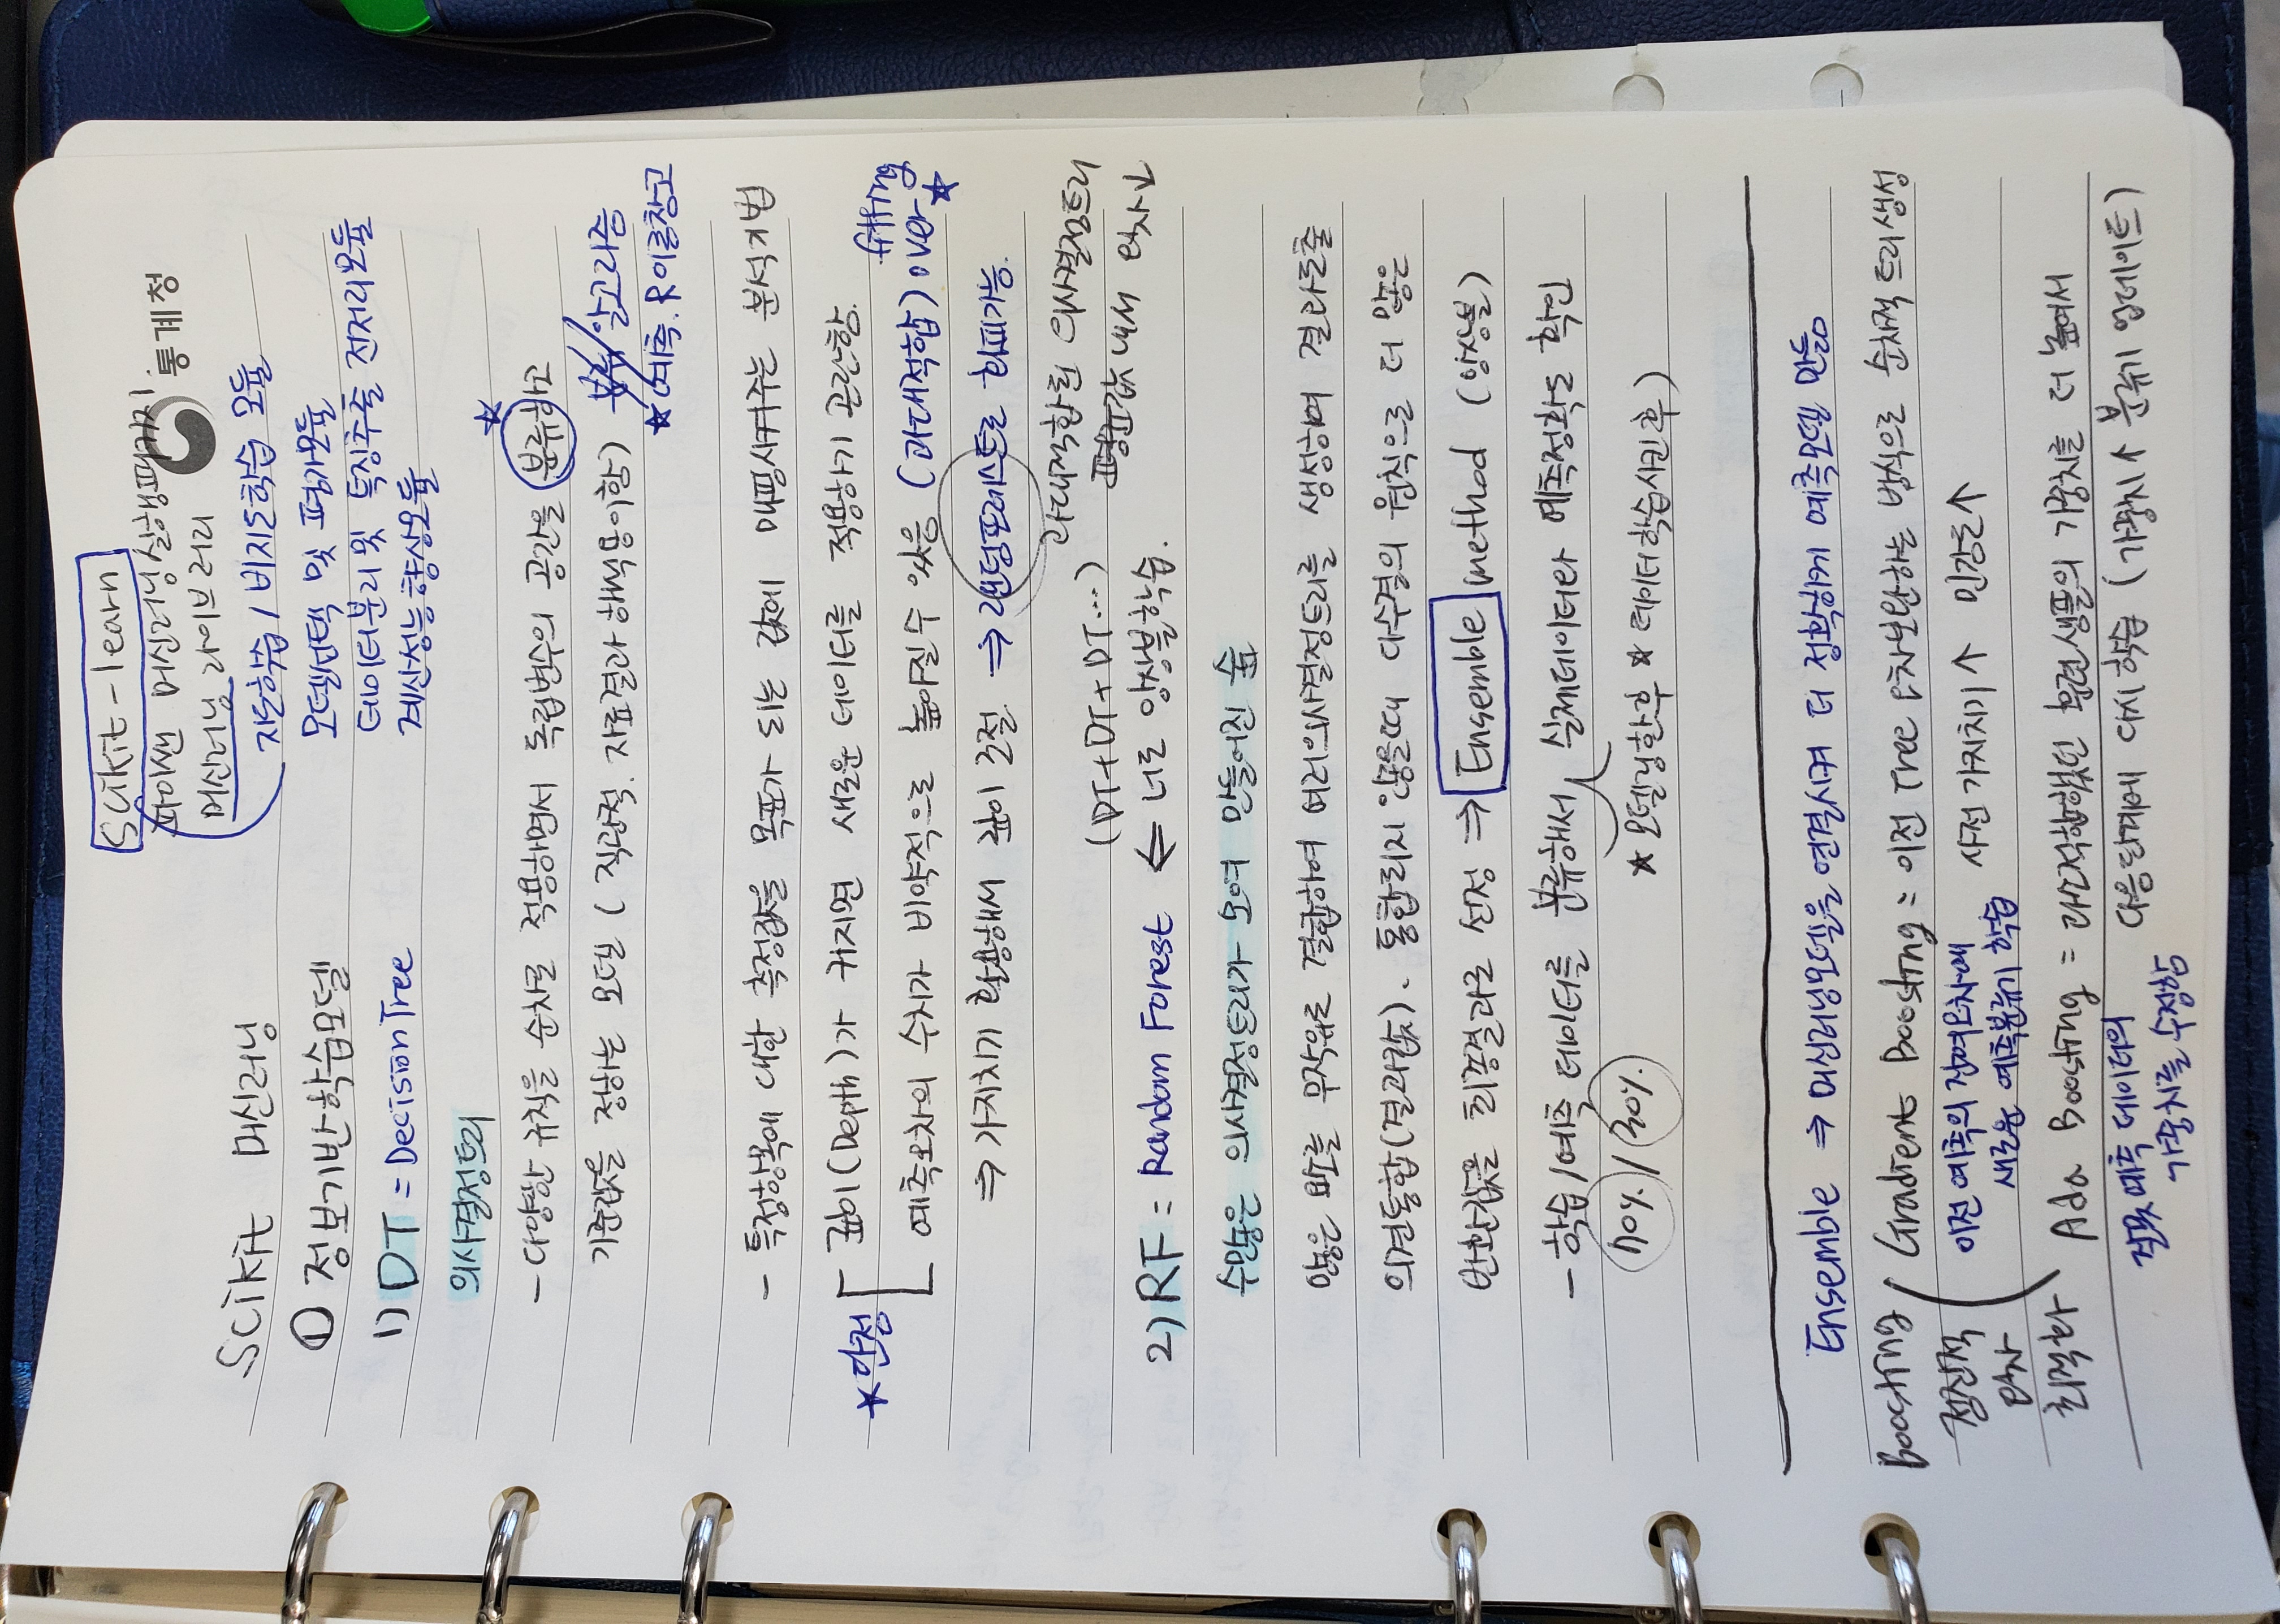 Scikit-learn
파이썬 머신러닝 실행패키지.
통계청
머신러닝 라이브러리
지도학습 / 비지도학습 모듈
모델선택 및 평가모듈
데이터분리 및 특징추출 전처리모듈
계산성능향상모듈
Scikit 머신러닝
① 정보기반학습모델
1) DT = Decision Tree
의사결정트리
- 다양한 규칙을 순차로 적용하면서 독립변수의 공간을 분류하고
기준값을 정하는 모델 ( 직관적. 자료결과 해석용이함)
알고리즘
★ 예측. R이론참고
- 특정항목에 대한 측정값을 목표가 되는 값에 매핑시켜주는 분석기법
★ 단점
깊이(Depth)가 커지면 새로운 데이터를 적용하기 곤란함.
예측오차의 수치가 비약적으로 높아질 수 있음 (과대적합) over
fitting ★
⇒ 가지치기 활용해서 깊이 조절. ⇒ 랜덤포레스트로 회피가능.
과대적합된 의사결정트리
평균값 내서 오차↓
(DT+DT+DT...)
2) RF = Random Forest ⇐ 너도 앙상블학습.
수많은 의사결정트리가 모여 만들어진 숲
많은 요소를 무작위로 결합하여 여러의사결정트리를 생성하여 결과도출
의견통합(결과값). 통합되지 않을때 다수결의 원칙으로 더 많은
반환값을 최종결과로 선정 ⇒ Ensemble method (앙상블)
- 학습/예측 데이터를 분류해서 실제데이터와 예측정확도 확인
70% / 30%
★ 모델링한후 ★ 데이터학습시킨 후)
Ensemble ⇒ 머신러닝모델을 연결시켜 더 정확하게 예측모델 만듦
Boosting
점진적
오차
최적화
Gradient Boosting = 이전 Tree 오차보완하는 방식으로 순차적 트리생성
이전 예측의 잔여오차에
새로운 예측분류기 학습
사전 가지치기↑ 민감도↑
Ada Boosting = 과소적합했던 훈련샘플의 가중치를 더 높여서
다음단계에 다시 학습 (가중치↑ 분류기 업데이트)
잘못 예측 데이터의
가중치를 수정함